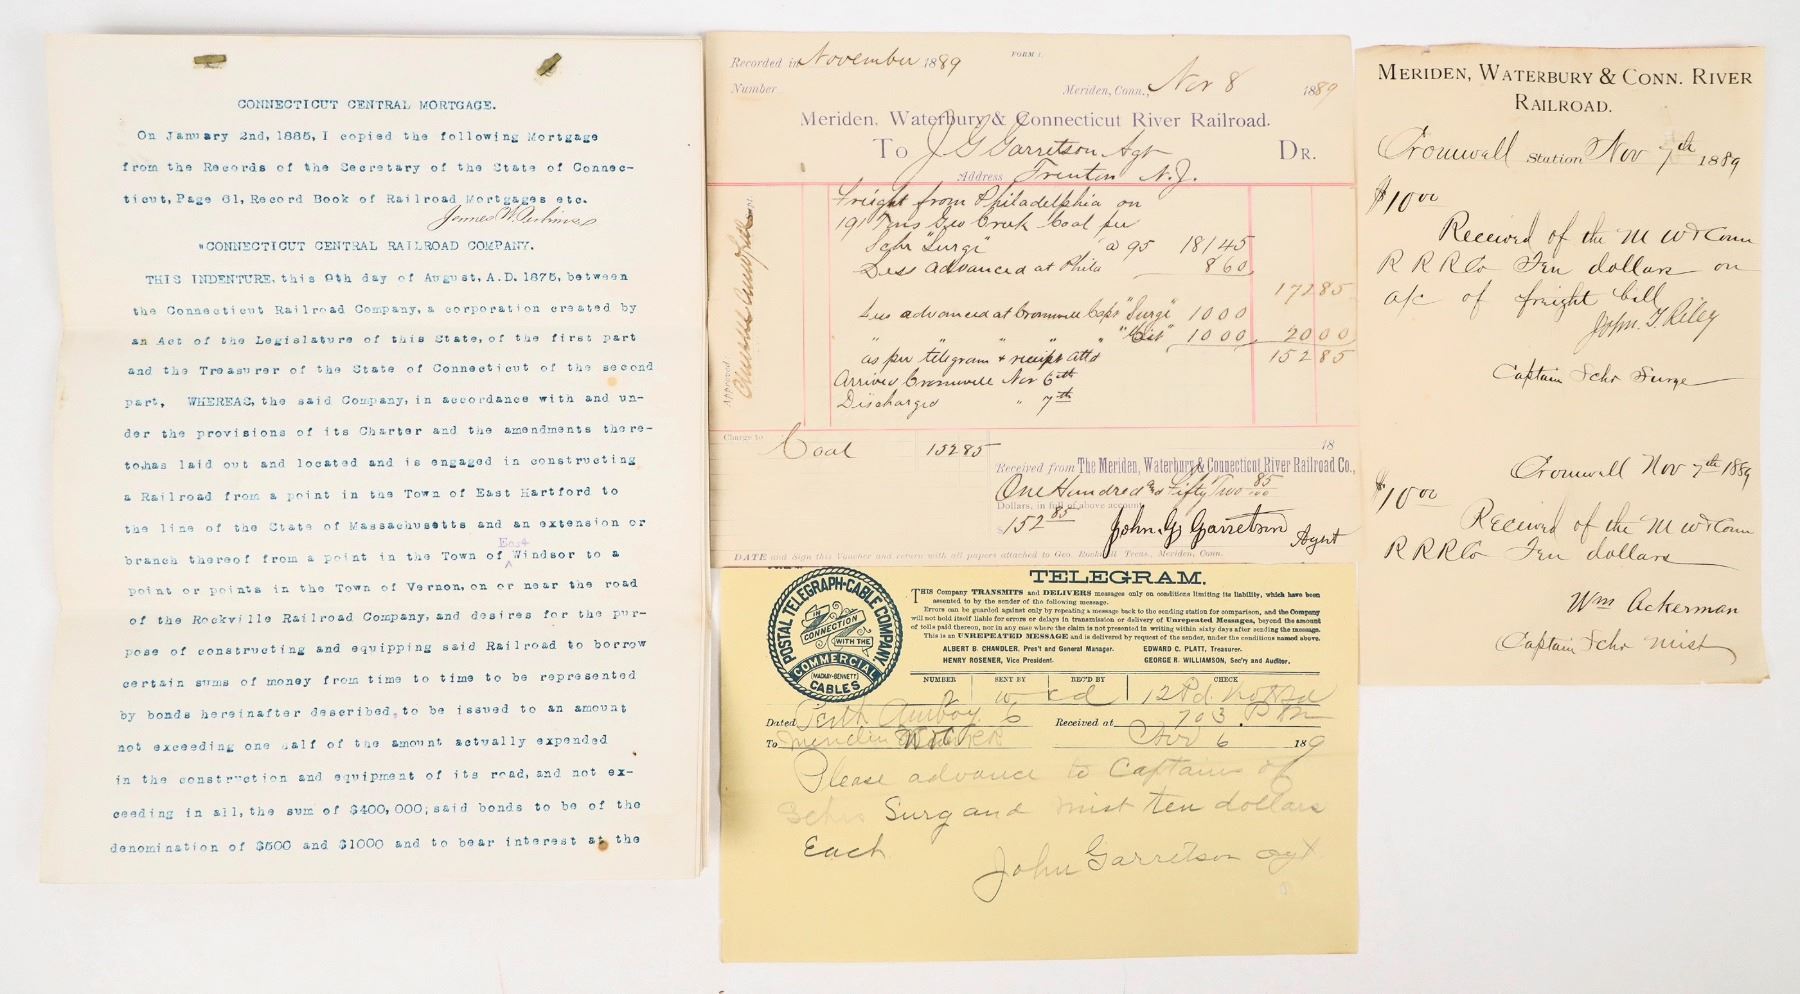 CONNECTICUT CENTRAL MORTGAGE.
On January 2nd, 1885, I copied the following Mortgage
from the Records of the Secretary of the State of Connec-
ticut, Page 61, Record Book of Railroad Mortgages etc.
James W. Perkins
"CONNECTICUT CENTRAL RAILROAD COMPANY.
THIS INDENTURE, this 9th day of August, A.D. 1875, between
the Connecticut Railroad Company, a corporation created by
an Act of the Legislature of this State, of the first part
and the Treasurer of the State of Connecticut of the second
part, WHEREAS, the said Company, in accordance with and un-
der the provisions of its Charter and the amendments there-
to,has laid out and located and is engaged in constructing
a Railroad from a point in the Town of East Hartford to
the line of the State of Massachusetts and an extension or
East
branch thereof from a point in the Town of ^ Windsor to a
point or points in the Town of Vernon, on or near the road
of the Rockville Railroad Company, and desires for the pur-
pose of constructing and equipping said Railroad to borrow
certain sums of money from time to time to be represented
by bonds hereinafter described, to be issued to an amount
not exceeding one half of the amount actually expended
in the construction and equipment of its road, and not ex-
ceeding in all, the sum of $400,000; said bonds to be of the
denomination of $500 and $1000 and to bear interest at the
Recorded in November 1889 FORM 1.
Number Meriden, Conn., Nov 8 1889
Meriden, Waterbury & Connecticut River Railroad.
To J G Garretson Agt DR.
Address Trenton N.J.
Freight from Philadelphia on
191 Tons Geo Creek Coal per
Schr "Surge" a 95 181 45
Less advanced at Phila 8 60
172 85
Less advanced at Cromwell Capt "Surge" 10 00
" " " " "Mist" 10 00 20 00
as per telegram & receipt attd 152 85
Arrived Cromwell Nov 6th
Discharged " 7th
Approved
Charge to Coal 152 85
18
Received from The Meriden, Waterbury & Connecticut River Railroad Co.,
One Hundred and Fifty Two 85/100
Dollars, in full of above account.
$152 85 John G Garretson Agent
DATE and Sign this Voucher and return with all papers attached to Geo. Rockwell Treas., Meriden, Conn.
TELEGRAM.
POSTAL TELEGRAPH-CABLE COMPANY.
IN
CONNECTION
WITH THE
COMMERCIAL
(MACKAY-BENNETT)
CABLES
THIS Company TRANSMITS and DELIVERS messages only on conditions limiting its liability, which have been
assented to by the sender of the following message.
Errors can be guarded against only by repeating a message back to the sending station for comparison, and the Company
will not hold itself liable for errors or delays in transmission or delivery of Unrepeated Messages, beyond the amount
of tolls paid thereon, nor in any case where the claim is not presented in writing within sixty days after sending the message.
This is an UNREPEATED MESSAGE and is delivered by request of the sender, under the conditions named above.
ALBERT B. CHANDLER, Pres't and General Manager. EDWARD C. PLATT, Treasurer.
HENRY ROSENER, Vice President. GEORGE R. WILLIAMSON, Sec'ry and Auditor.
NUMBER SENT BY REC'D BY CHECK
2 W 12 Pd
Dated Perth Amboy 6 Received at 703 PM
To Meriden Nov 6 189
Please advance to Captains of
Schrs Surg and Mist ten dollars
Each
John Garretson agt
MERIDEN, WATERBURY & CONN. RIVER
RAILROAD.
Cromwell Station Nov 7th 1889
$10 00
Received of the M W & Conn
R R R Co Ten dollars on
a/c of freight bill
John T. Riley
Captain Schr Surge
Cromwell Nov 7th 1889
$10 00
Received of the M W & Conn
R R R Co Ten dollars
Wm Ackerman
Captain Schr Mist